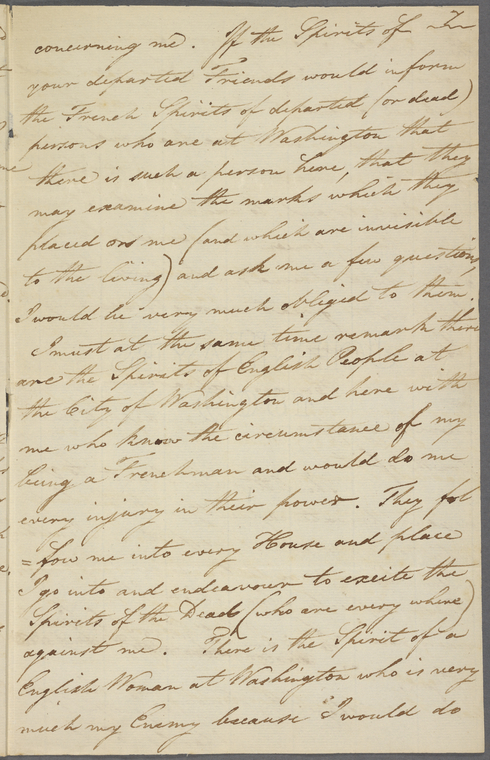 concerning me. If the Spirits of
your departed Friends would inform
the French Spirits of departed (or dead)
persons who are at Washington that
there is such a person here, that they
may examine the marks which they
placed on me (and which are invisible
to the living) and ask me a few questions,
I would be very much obliged to them.
I must at the same time remark there
are the Spirits of English People at
the City of Washington and here with
me who know the circumstance of my
being a Frenchman and would do me
every injury in their power. They fol
=low me into every House and place
I go into and endeavour to excite the
Spirits of the Dead (who are every where)
against me. There is the Spirit of a
English Woman at Washington who is very
much my Enemy because I would do